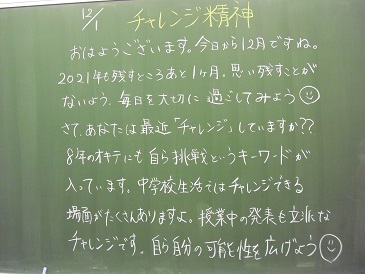 12/1 チャレンジ精神
おはようございます。今日から12月ですね。
2021年も残すところあと1ヶ月。思い残すことが
ないよう、毎日を大切に過ごしてみよう
さて、あなたは最近「チャレンジ」していますか??
8年のオキテにも自ら挑戦というキーワードが
入っています。中学校生活ではチャレンジできる
場面がたくさんありますよ。授業中の発表も立派な
チャレンジです。自ら自分の可能性を広げよう